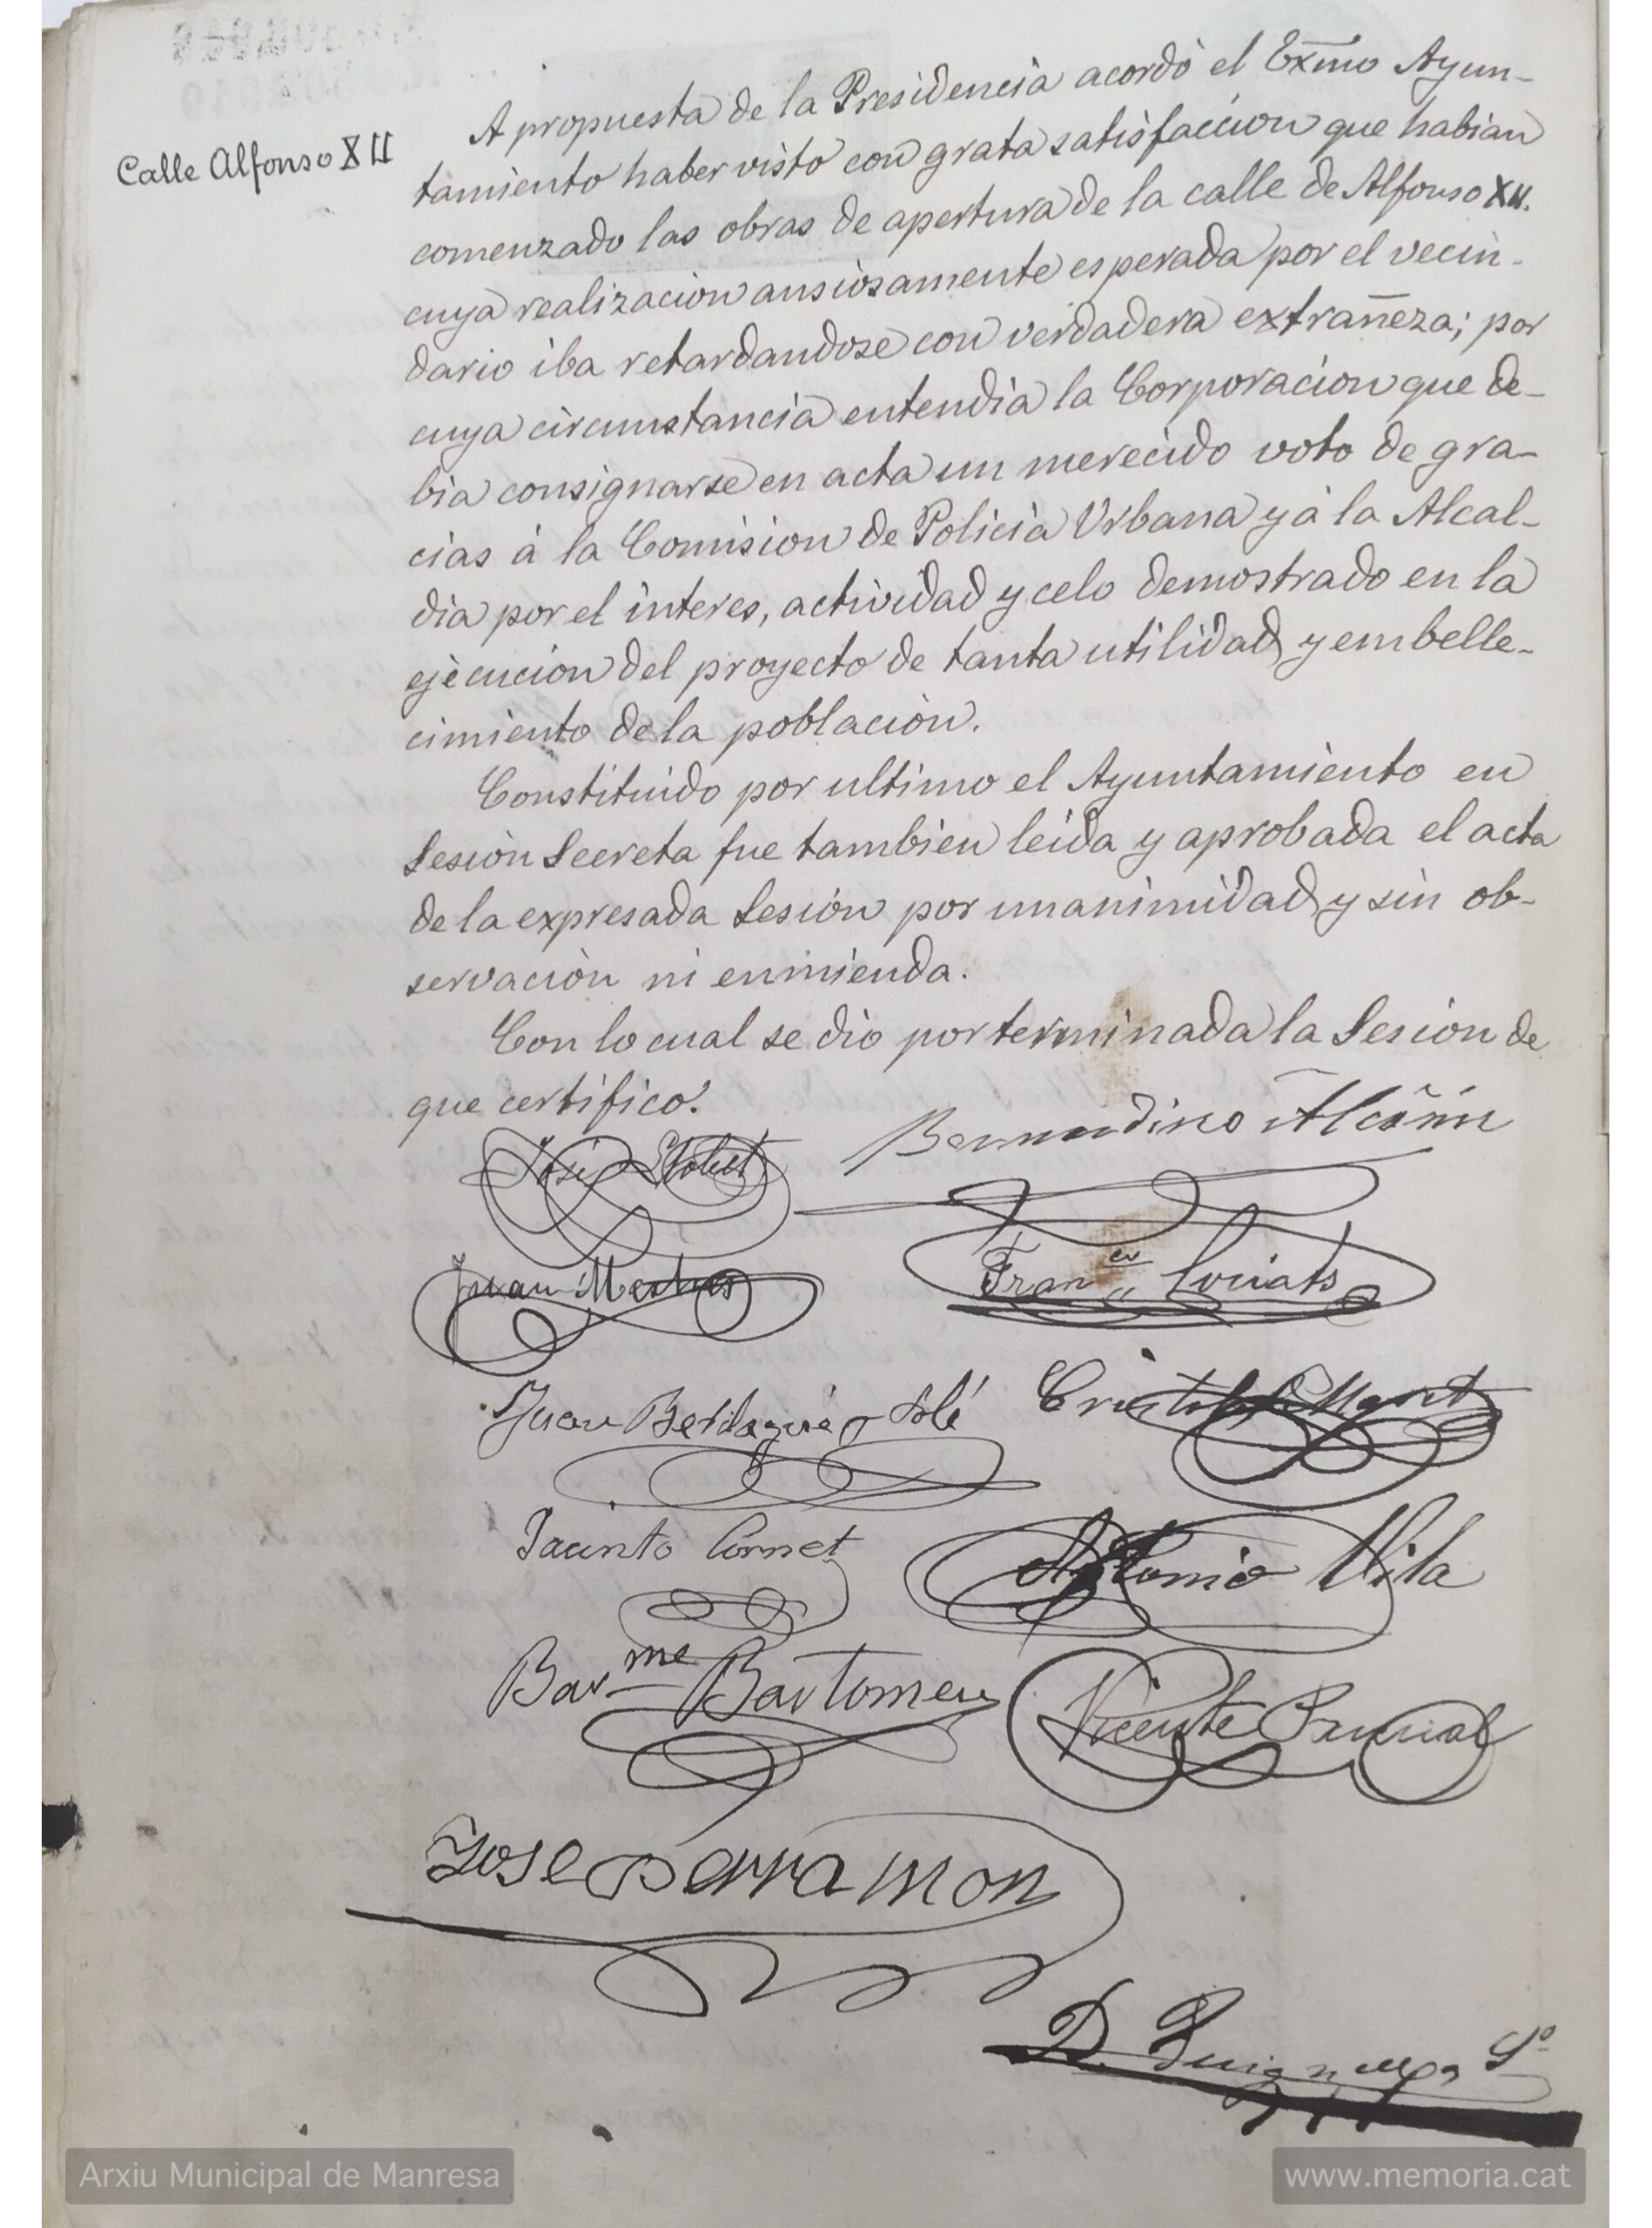 Calle Alfonso XII
A propuesta de la Presidencia acordó el Exmo Ayun-
tamiento haber visto con grata satisfaccion que habian
comenzado las obras de apertura de la calle de Alfonso XII.
cuya realizacion ansiosamente esperada por el vecin-
dario iba retardandose con verdadera extrañeza; por
cuya circunstancia entendia la Corporacion que de-
bia consignarse en acta un merecido voto de gra-
cias á la Comision de Policia Urbana y á la Alcal-
dia por el interes, actividad y celo demostrado en la
ejecucion del proyecto de tanta utilidad y embelle-
cimiento de la población.
Constituido por ultimo el Ayuntamiento en
Sesión Secreta fue tambien leida y aprobada el acta
de la expresada Sesión por unanimidad y sin ob-
servación ni enmienda.
Con lo cual se dio por terminada la Sesión de
que certifico.
José
Bernardino
Juan
Fran.co
Juan Berdagué y Solé
Jacinto Cornet
Antonio Vila
Bar.me Bartomeu
Vicente Pascual
Jose Perramon
D.
Arxiu Municipal de Manresa
www.memoria.cat